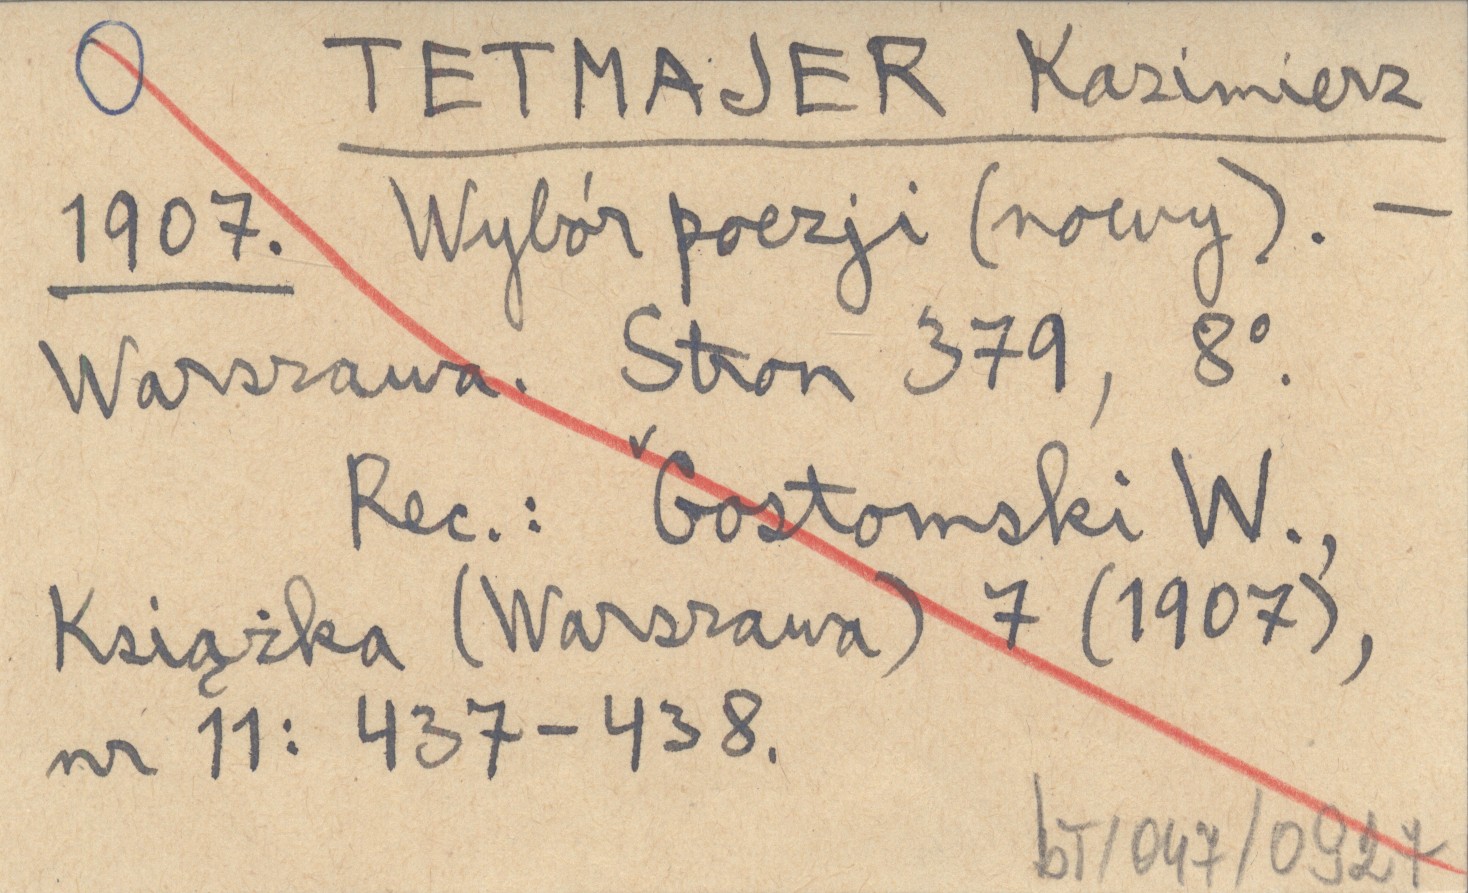 TETMAJER Kazimierz
1907. Wybór poezji (nowy). —
Warszawa. Stron 379, 8°.
Rec.: Gostomski W.,
Książka (Warszawa) 7 (1907),
nr 11: 437-438.
bT/047/0927